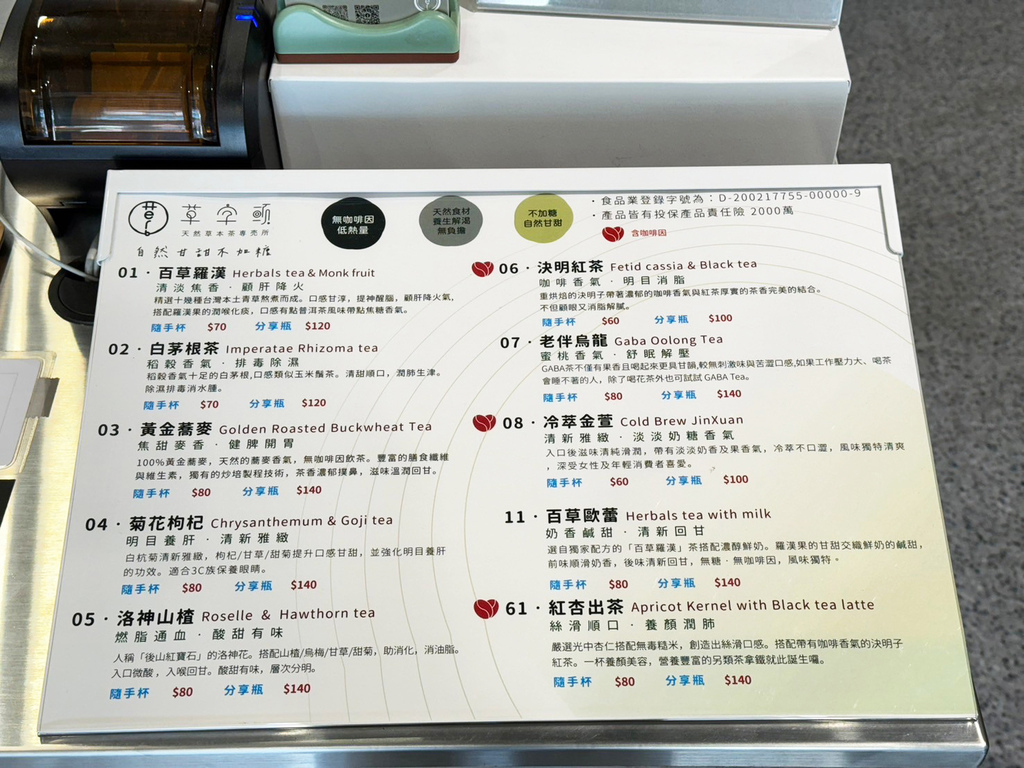 草字頭
天然草本茶專売所
自然甘甜不加糖
無咖啡因
低熱量
天然食材
養生解渴
無負擔
不加糖
自然甘甜
・食品業登錄字號為：D-200217755-00000-9
・產品皆有投保產品責任險 2000萬
含咖啡因
01・百草羅漢 Herbals tea & Monk fruit
清淡焦香・顧肝降火
精選十幾種台灣本土青草熬煮而成。口感甘淳，提神醒腦，顧肝降火氣，
搭配羅漢果的潤喉化痰，口感有點普洱茶風味帶點焦糖香氣。
隨手杯 $70 分享瓶 $120
02・白茅根茶 Imperatae Rhizoma tea
稻穀香氣・排毒除濕
稻穀香氣十足的白茅根,口感類似玉米鬚茶。清甜順口，潤肺生津。
除濕排毒消水腫。
隨手杯 $70 分享瓶 $120
03・黃金蕎麥 Golden Roasted Buckwheat Tea
焦甜麥香・健脾開胃
100%黃金蕎麥，天然的蕎麥香氣，無咖啡因飲茶。豐富的膳食纖維
與維生素，獨有的炒培製程技術，茶香濃郁撲鼻，滋味溫潤回甘。
隨手杯 $80 分享瓶 $140
04・菊花枸杞 Chrysanthemum & Goji tea
明目養肝・清新雅緻
白杭菊清新雅緻，枸杞/甘草/甜菊提升口感甘甜，並強化明目養肝
的功效。適合3C族保養眼睛。
隨手杯 $80 分享瓶 $140
05・洛神山楂 Roselle & Hawthorn tea
燃脂通血・酸甜有味
人稱「後山紅寶石」的洛神花。搭配山楂/烏梅/甘草/甜菊，助消化，消油脂。
入口微酸，入喉回甘。酸甜有味，層次分明。
隨手杯 $80 分享瓶 $140
06・決明紅茶 Fetid cassia & Black tea
咖啡香氣・明目消脂
重烘焙的決明子帶著濃郁的咖啡香氣與紅茶厚實的茶香完美的結合。
不但顧眼又消脂解膩。
隨手杯 $60 分享瓶 $100
07・老伴烏龍 Gaba Oolong Tea
蜜桃香氣・舒眠解壓
GABA茶不僅有果香且喝起來更具甘韻,較無刺激味與苦澀口感,如果工作壓力大、喝茶
會睡不著的人，除了喝花茶外也可試試 GABA Tea。
隨手杯 $80 分享瓶 $140
08・冷萃金萱 Cold Brew JinXuan
清新雅緻・淡淡奶糖香氣
入口後滋味清純滑潤，帶有淡淡奶香及果香氣，冷萃不口澀，風味獨特清爽
，深受女性及年輕消費者喜愛。
隨手杯 $60 分享瓶 $100
11・百草歐蕾 Herbals tea with milk
奶香鹹甜・清新回甘
選自獨家配方的「百草羅漢」茶搭配濃醇鮮奶。羅漢果的甘甜交織鮮奶的鹹甜，
前味順滑奶香，後味清新回甘，無糖・無咖啡因，風味獨特。
隨手杯 $80 分享瓶 $140
61・紅杏出茶 Apricot Kernel with Black tea latte
絲滑順口・養顏潤肺
嚴選光中杏仁搭配無毒糙米，創造出絲滑口感。搭配帶有咖啡香氣的決明子
紅茶。一杯養顏美容，營養豐富的另類茶拿鐵就此誕生囉。
隨手杯 $80 分享瓶 $140